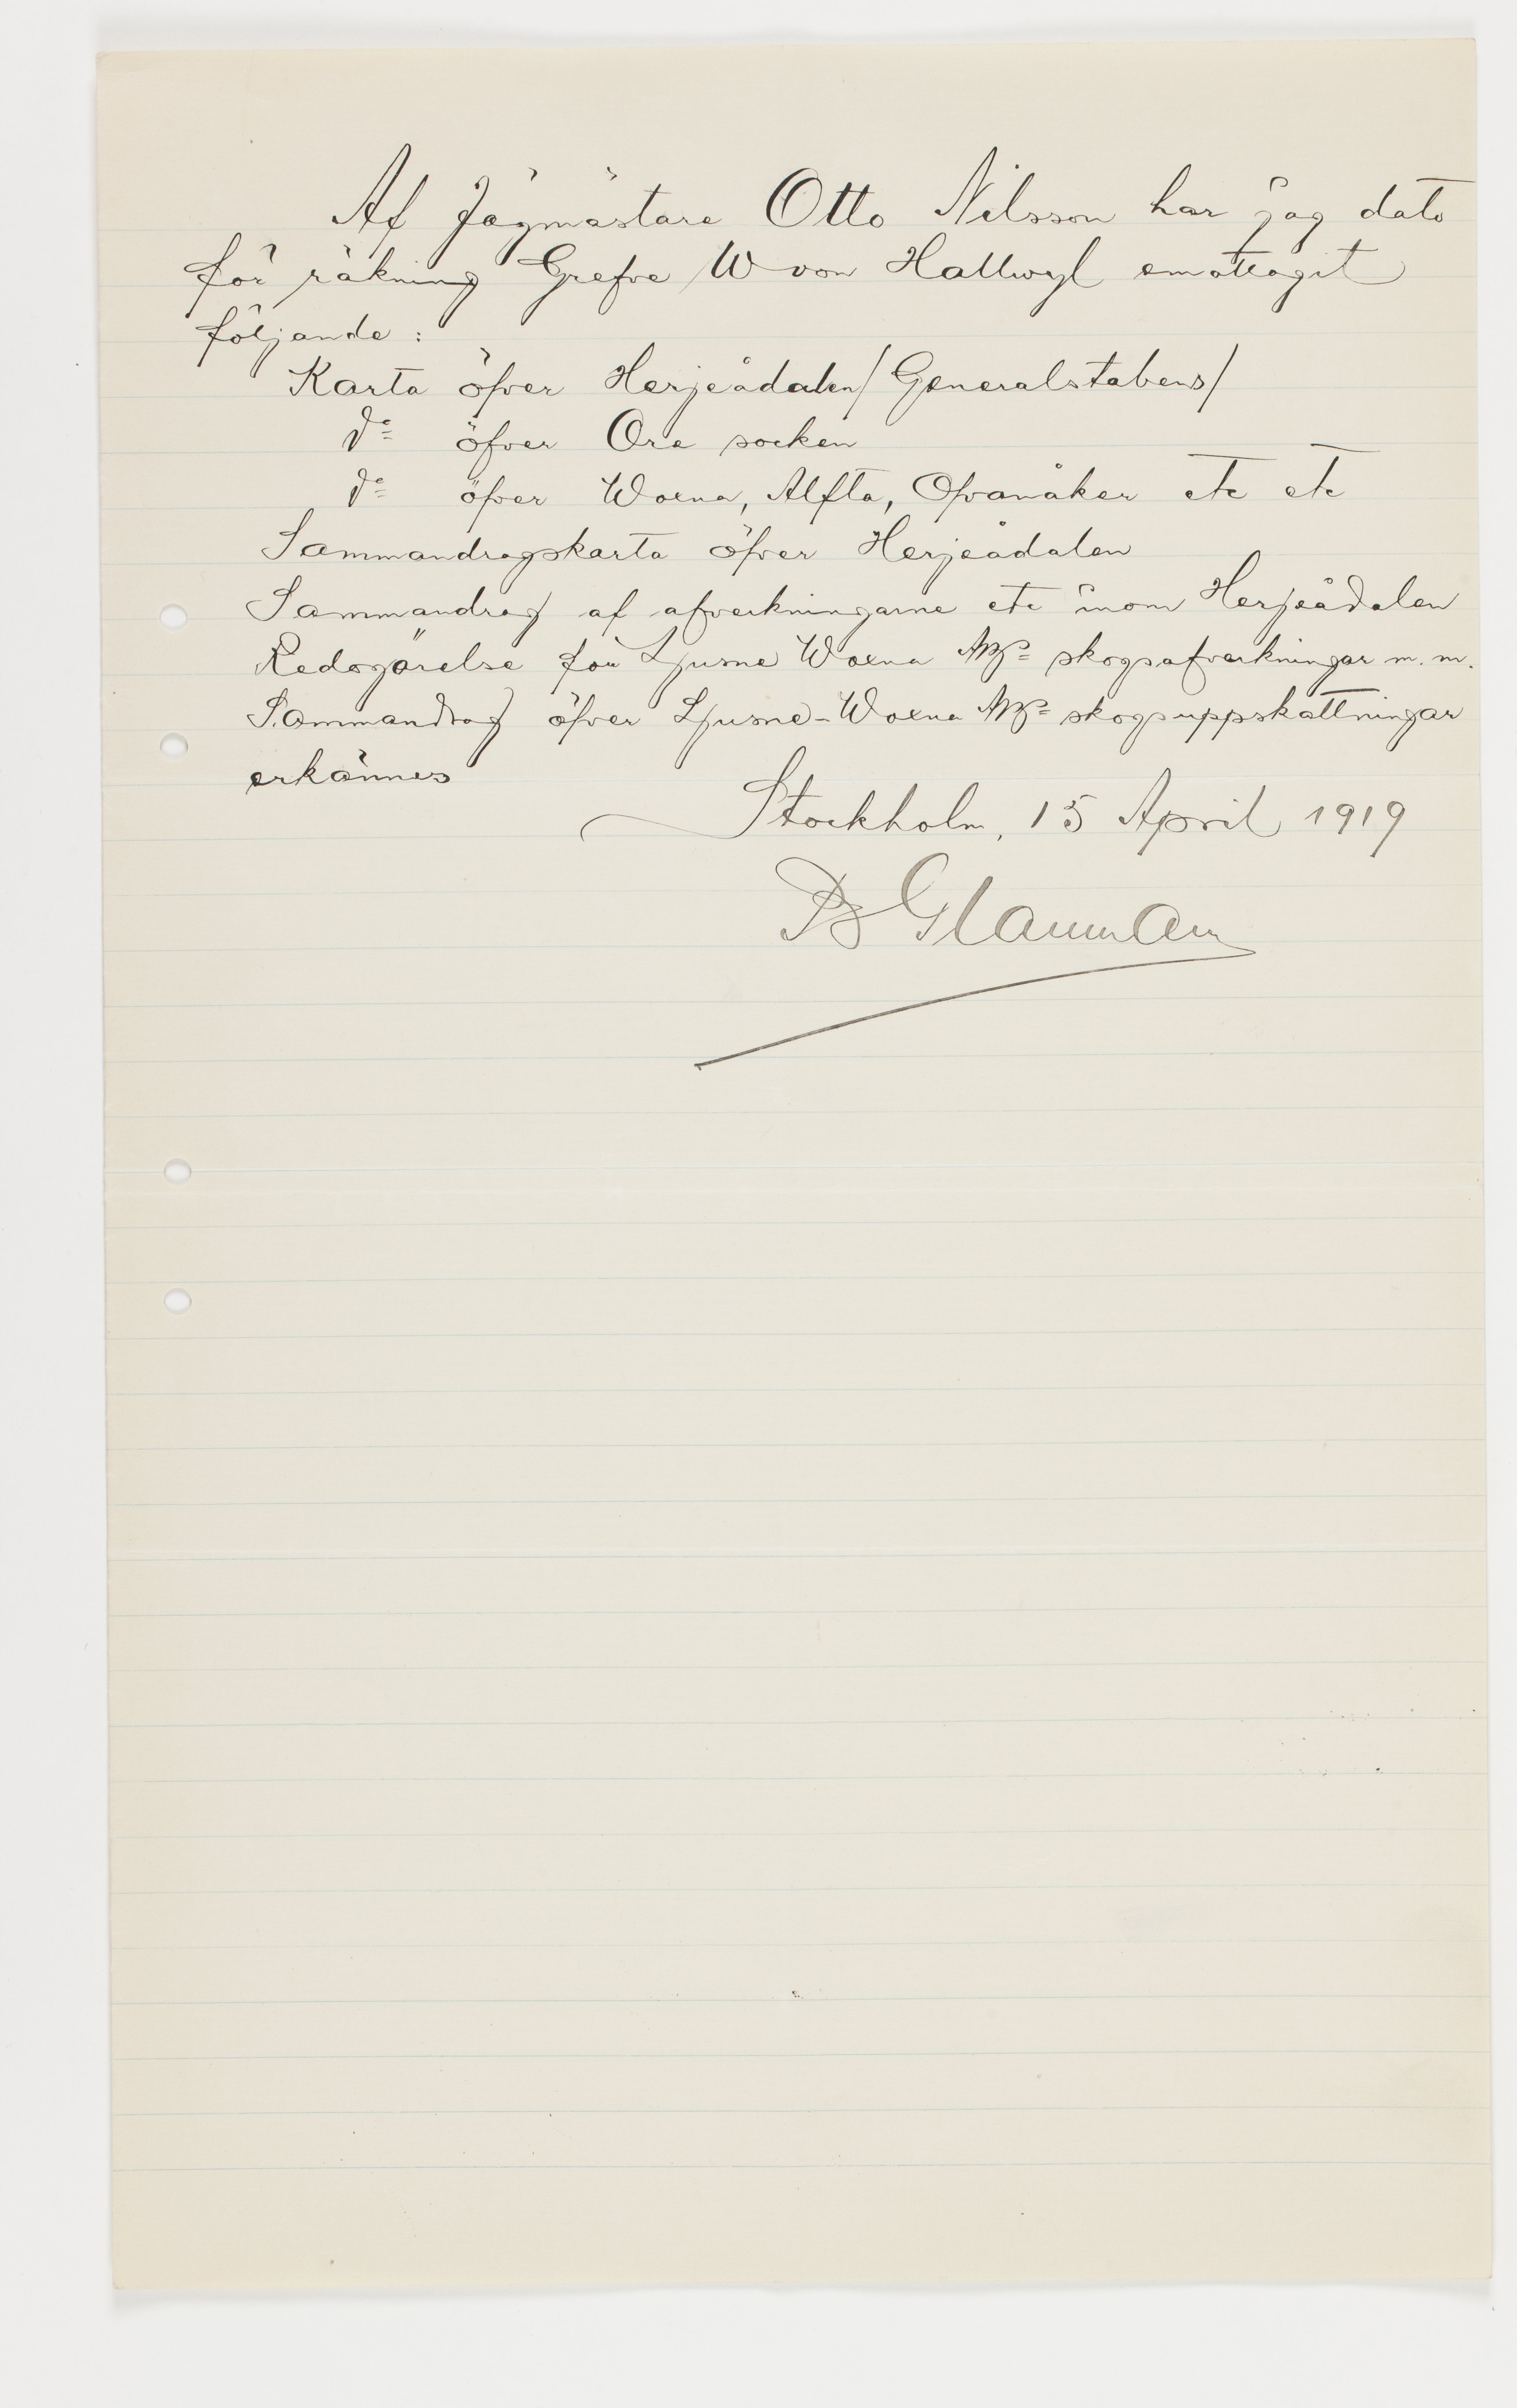 Af Jägmästare Otto Nilsson har jag dato
för räkning Grefve W von Hallwyl emottagit
följande:
Karta öfver Herjeådalen /Generalstabens/
do öfver Ore socken
do öfver Woxna, Alfta, Ofvanåker etc etc
Sammandragskarta öfver Herjeådalen
Sammandrag af afverkningarne etc inom Herjeådalen
Redogörelse för Ljusne Woxna skogsafverkningar m. m.
Sammandrag öfver Ljusne-Woxna skogsuppskattningar
erkännes
Stockholm, 15 April 1919
B Glamman